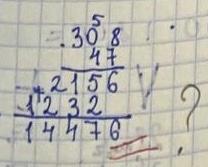 5
.30 8
47
+ 2156
1232
14476
?